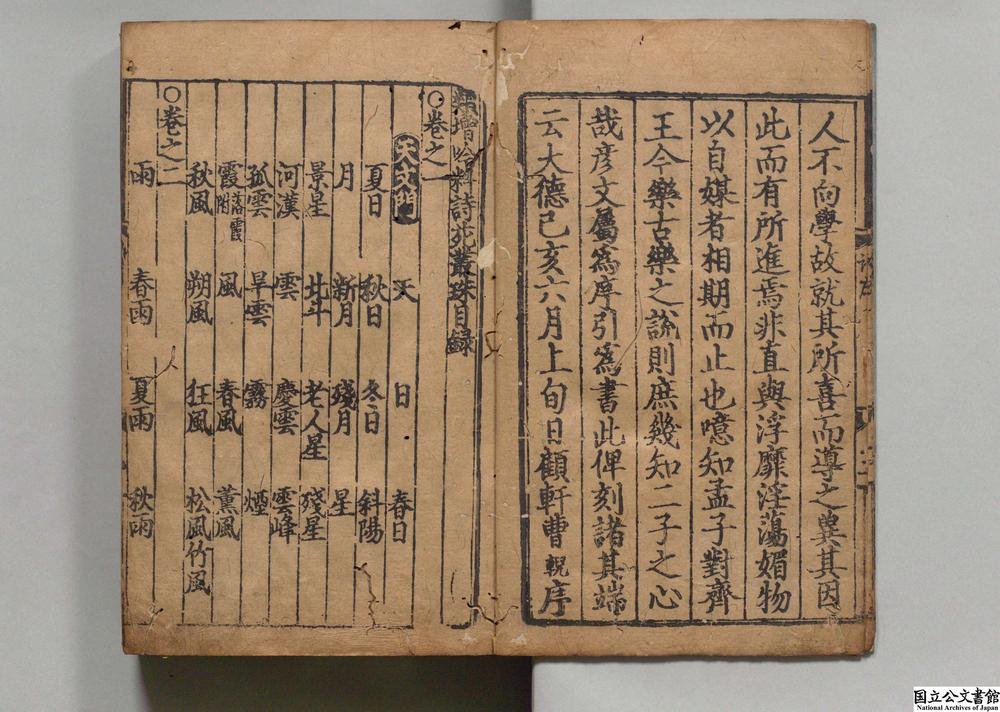 人不向學故就其所喜而導之兾其因
此而有所進焉非直與浮靡淫蕩媚物
以自媒者相期而止也噫知孟子對齊
王今樂古樂之說則庶幾知二子之心
哉彦文屬爲序引爲書此俾刻諸其端
云大德己亥六月上旬日顧軒曹輗序
增吟料詩苑叢珠目録
○卷之一
天文門 天 日 春日
夏日 秋日 冬日 斜陽
月 新月 殘月 星
景星 北斗 老人星 殘星
河漢 雲 慶雲 雲峰
孤雲 旱雲 霧 煙
霞附落霞 風 春風 薰風
秋風 朔風 狂風 松風竹風
○卷之二
雨 春雨 夏雨 秋雨
国立公文書館
National Archives of Japan